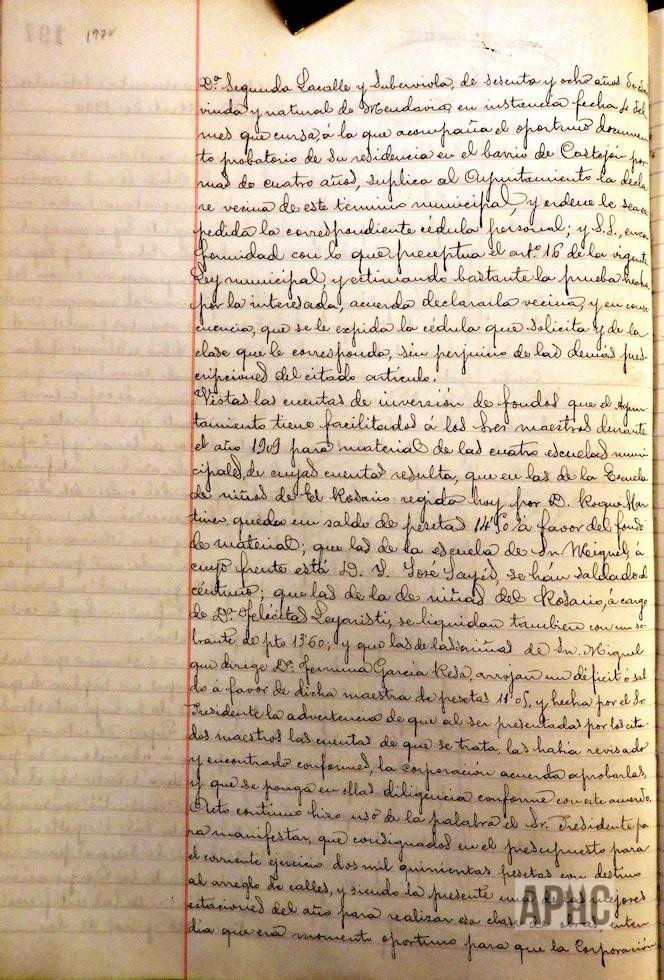 197v
Dª Segunda Lacalle y Suberviola, de sesenta y ocho años de
viuda y natural de Mendavia, en instancia fecha 4 del
mes que cursa, á la que acompaña el oportuno documen
to probatorio de su residencia en el barrio de Castejón por
mas de cuatro años, suplica al Ayuntamiento la decla
re vecina de este término municipal, y ordene le sea ex
pedida la correspondiente cédula personal; y S.S., en con
formidad con lo que preceptua el artº 16 de la vigente
Ley municipal y estimando bastante la prueba hecha
por la interesada, acuerda declararla vecina, y en conse
cuencia, que se le expida la cédula que solicita y de la
clase que le corresponda, sin perjuicio de las demás pres
cripciones del citado artículo.
Vistas las cuentas de inversión de fondos que el Ayun
tamiento tiene facilitados á los Sres maestros durante
el año 1909 para material de las cuatro escuelas muni
cipales, de cuyas cuentas resulta, que en las de la Escuela
de niños de El Rosario regida hoy por D. Roque Mar
tinez, queda un saldo de pesetas 14'50 á favor del fondo
de material; que las de la escuela de Sn Miguel, á
cuyo frente está D. José Sayés, se hán saldado al
céntimo; que las de la de niñas del Rosario, á cargo
de Dª Felicitas Leyaristi, se liquidan tambien con un so
brante de pts 13'60; y que las de las niñas de Sn. Miguel
que dirige Dª Fermina García Resa, arrojan un déficit ó sal
do á favor de dicha maestra de pesetas 11'05, y hecha por el Sr.
Presidente la advertencia de que al ser presentadas por los cita
dos maestros las cuentas de que se trata, las había revisado
y encontrado conformes, la corporación acuerda aprobarlas,
y que se ponga en ellas diligencia conforme con este acuerdo.
Acto contínuo hizo uso de la palabra el Sr. Presidente pa
ra manifestar, que consignados en el presupuesto para
el corriente ejercicio dos mil quinientas pesetas con destino
al arreglo de calles, y siendo la presente una de las mejores
estaciones del año para realizar esa clase de obras, enten
dia que era momento oportuno para que la Corporación
APHC